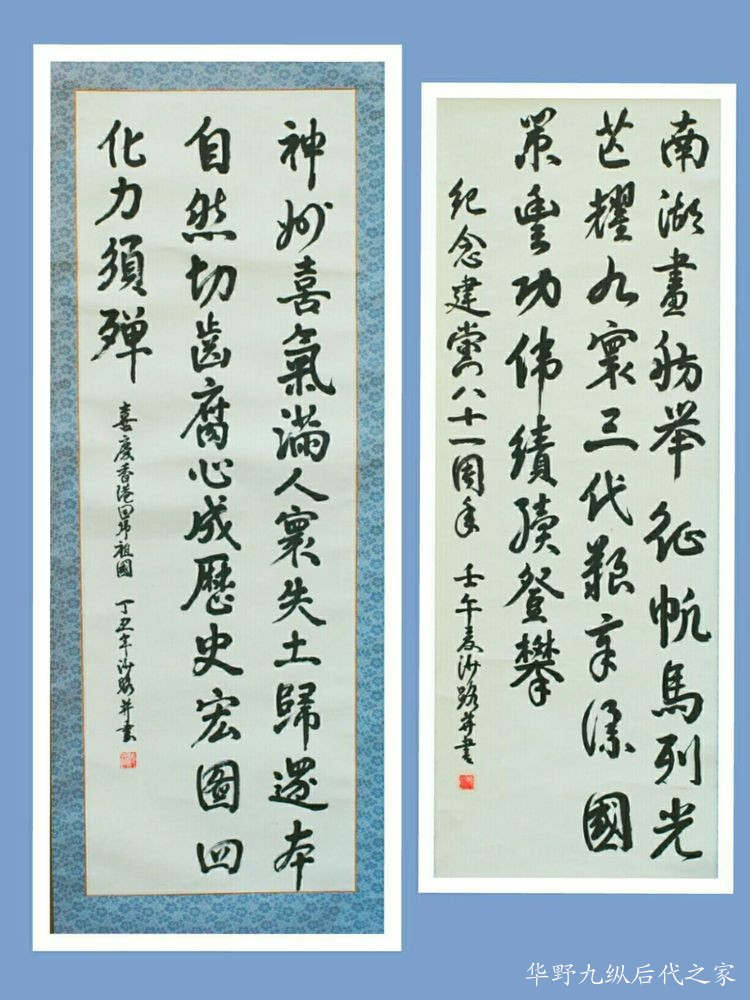 神州喜氣滿人寰失土歸還本
自然切齒腐心成歷史宏圖四
化力須殫
喜慶香港回帰祖國 丁丑年沙路并書
南湖畫舫举征帆馬列光
芒耀九寰三代艱辛 國
策豐功伟績續登攀
纪念建黨八十一周年 壬午夏沙路并書
华野九纵后代之家